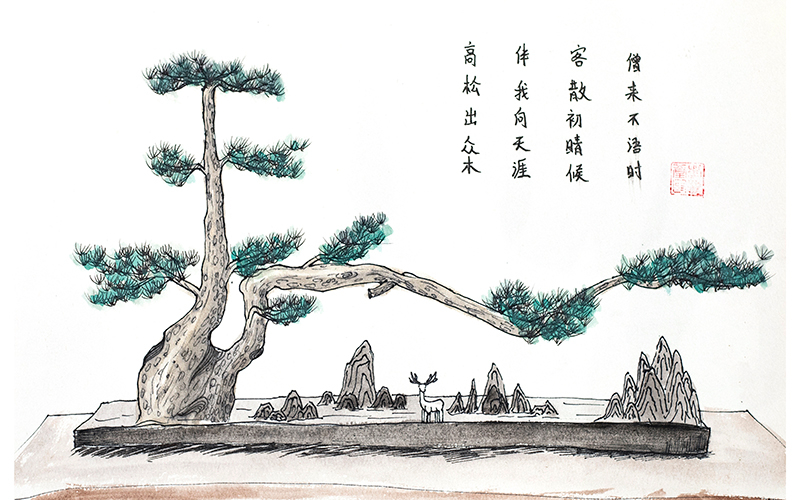 高松出众木
伴我向天涯
客散初晴候
僧来不语时